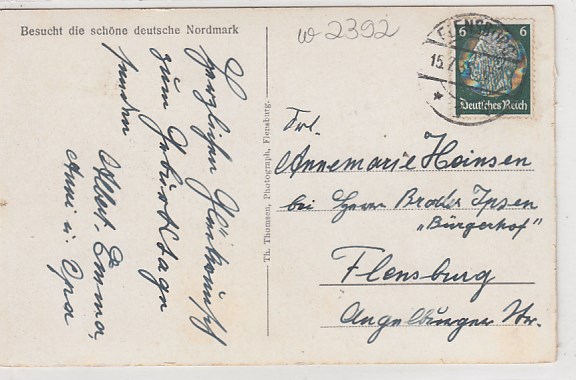 Besucht die schöne deutsche Nordmark
w 2392
FLENSBURG
15.7.
6 6
Deutsches Reich
Herzlichen Glückwunsch
zum Geburtstage
senden
Albert, Emma,
Anni u. Opa
Th. Thomsen, Photograph, Flensburg.
Frl.
Annemarie Heinsen
bei Herrn Broder Ipsen
„Bürgerhof"
Flensburg
Angelburger Str.